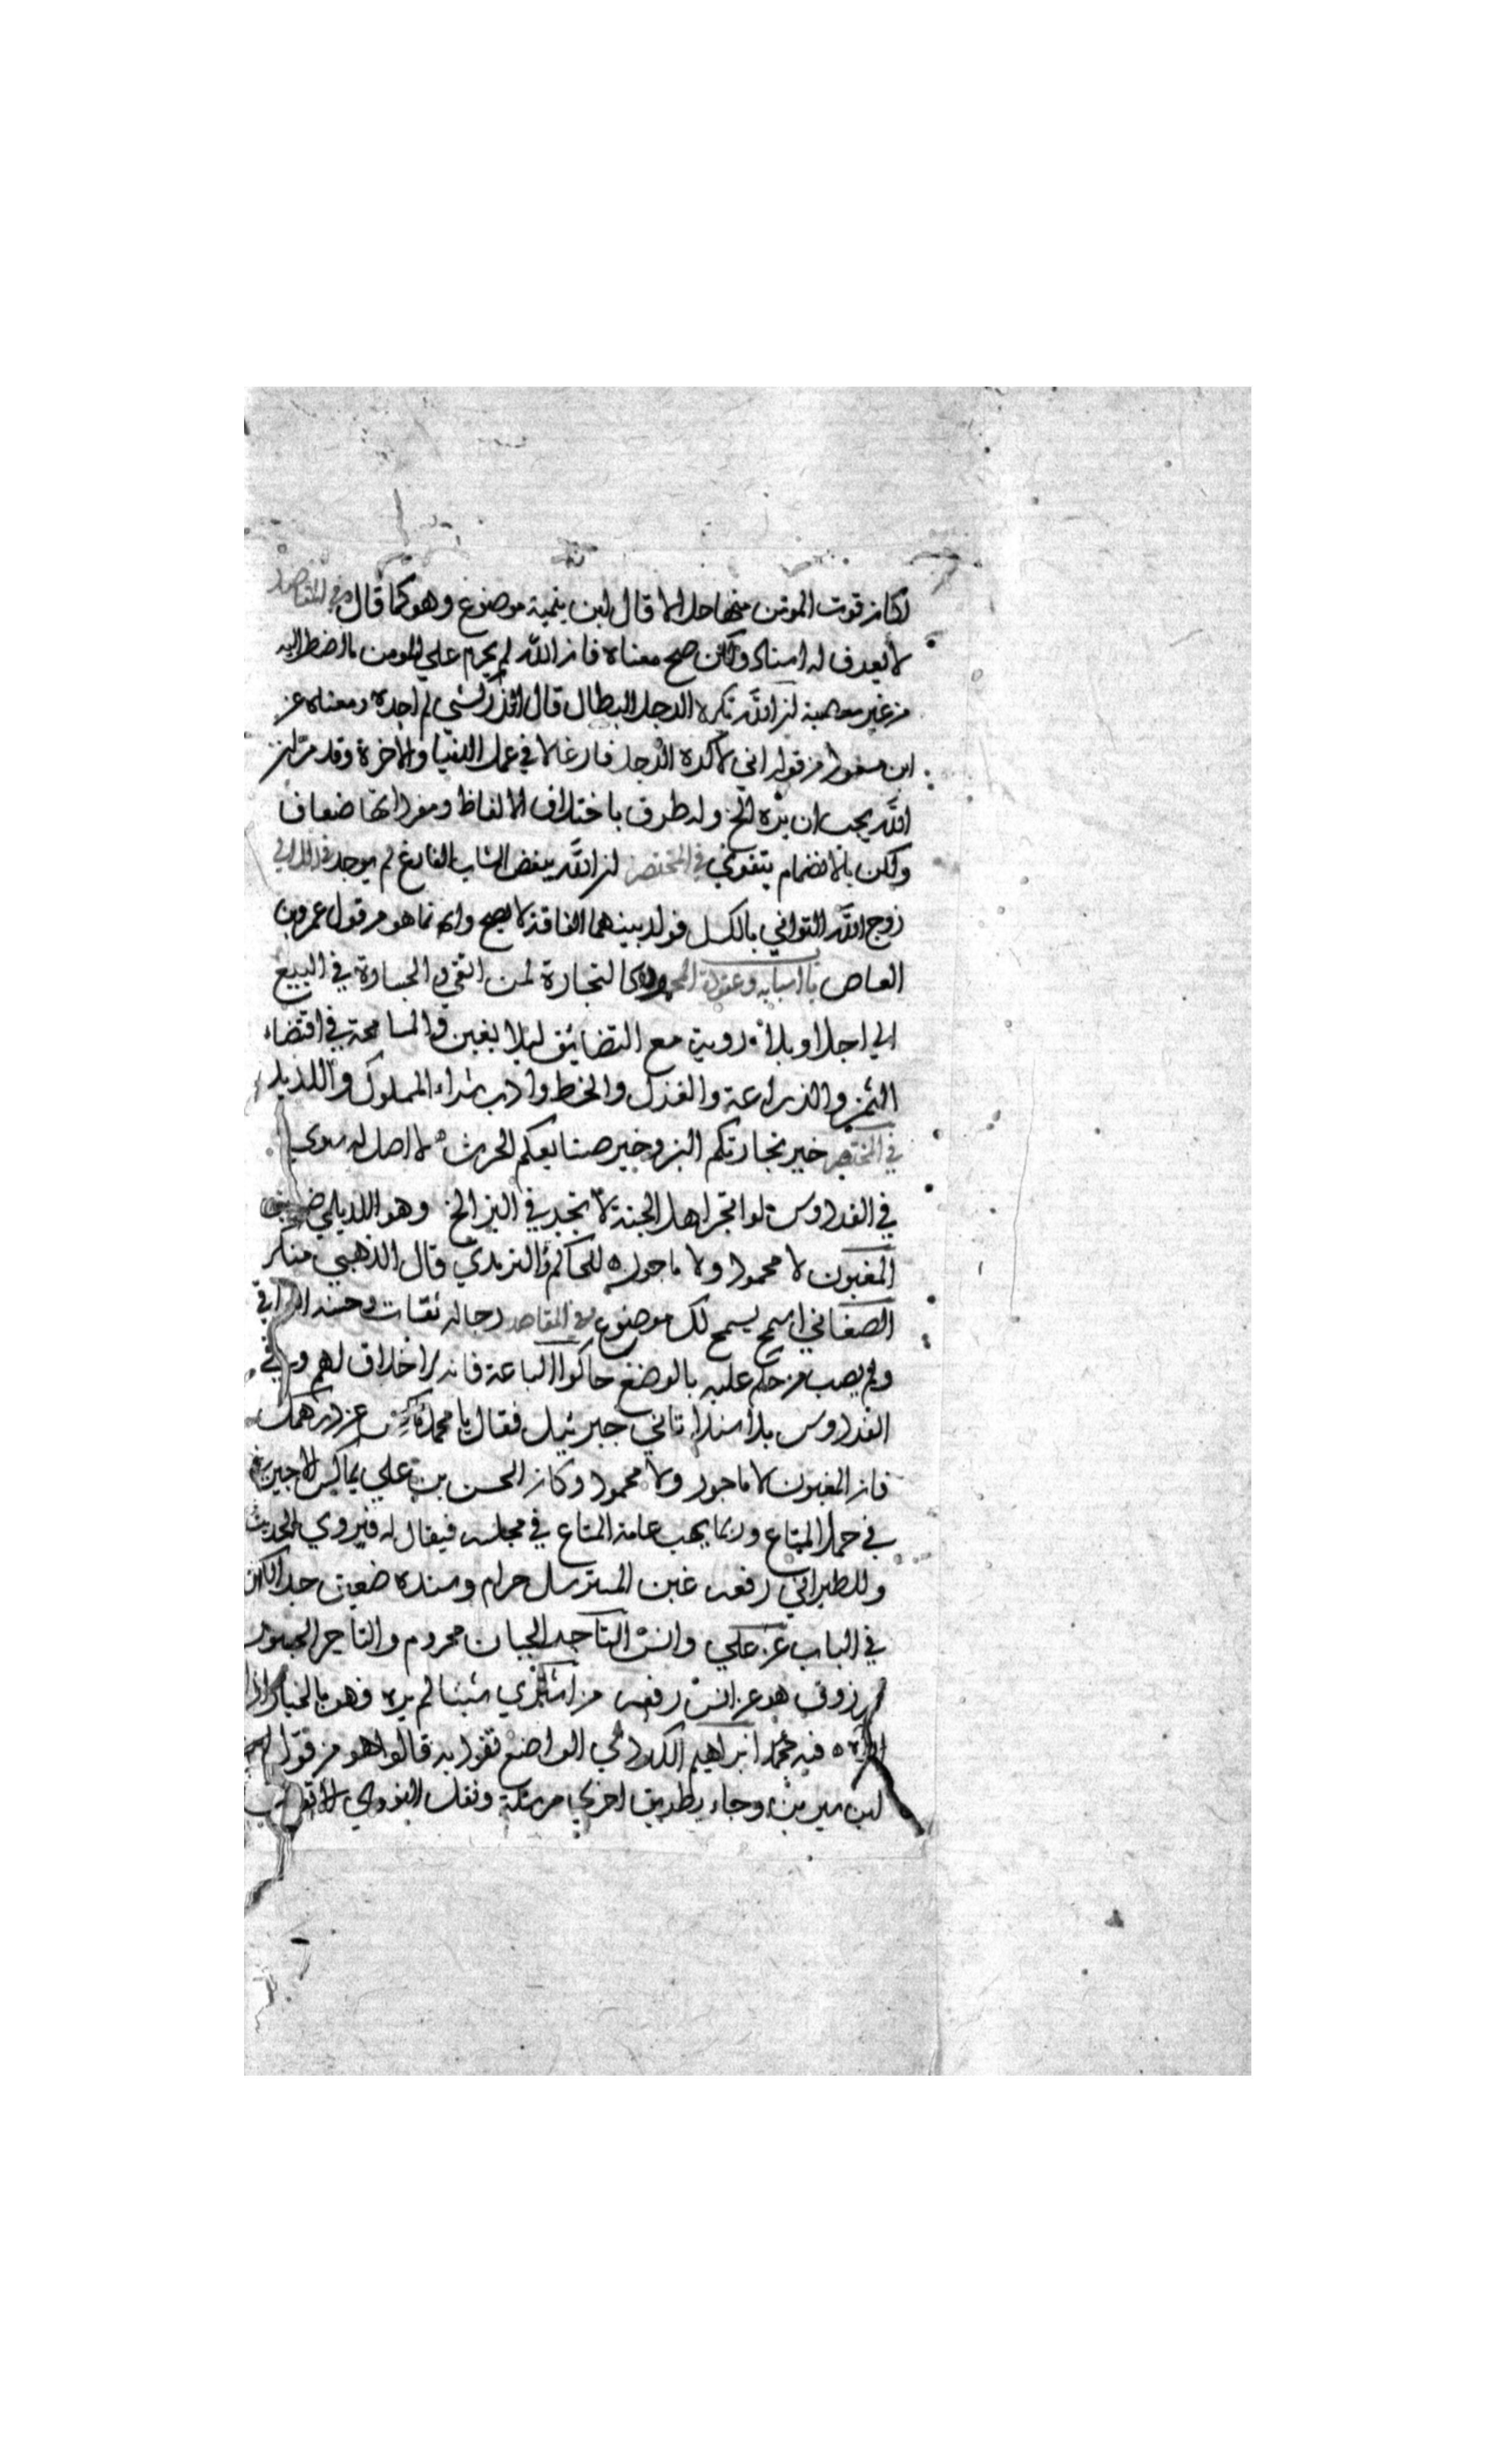 لكان قوت المؤمن منها حلالا قال ابن تيمية موضوع وهو كما قال في المقاصد
لا يعرف له اسناد ولكن صح معناه فان الله لم يحرم على المومن ما اضطر اليه
من غير معصية ان الله يكره الرجل البطال قال الزركشي لم اجده ومعناه عن
ابن مسعود من قوله اني لاكره الرجل فارغا لا في عمل الدنيا والاخرة وقد مر ان
الله يحب ان يره الخ وله طرق باختلاف الالفاظ ومفرداتها ضعاف
ولكن بالانضمام يتقوي في المختصر ان الله يبغض الشاب الفارغ لم يوجد
زوج الله التواني بالكسل فولد بينهما الفاقة لا يصح وانما هو من قول عمرو بن
العاص باب اسبابه وعقوده المحمودة كالتجارة لمن اتقي والجسارة في البيع
الي اجل او بلا روية مع التضائق ليلا يغبن والمسامحة في اقتضاء
الثمن والزراعة والغزل والخط وادب شراء المملوك
في المختصر خير تجارتكم البز وخير صنايعكم الحرث لا اصل له سوي
في الفردوس لو اتجر اهل الجنة لاتجر في البز الخ وهو للديلمي ضعيف
المغبون لا محمود ولا ماجور للحاكم والترمذي قال الذهبي منكر
الصغاني اسمح يسمح لك موضوع في المقاصد رجاله ثقات وحسنه العراقي
ولم يصب من حكم عليه بالوضع حاكوا الباعة فانه لا خلاق لهم وفي
الفردوس بلا سند اتاني جبرئيل فقال يا محمد ماكس عن درهمك
فان المغبون لا ماجور ولا محمود وكان الحسن بن علي يماكس
في حمل المتاع وربما يهب عامة المتاع في مجلسه فيقال له فيروي الحديث
وللطبراني رفعه غبن المسترسل حرام وسنده ضعيف جدا لكن
في الباب عن علي وانس التاجر الجبان محروم والتاجر الجسور
مرزوق هو عن انس رفعه من اشتري شيئا لم يره فهو بالخيار اذا
راه فيه عمر بن ابراهيم الكردي الواضع تفرد به قالوا هو من قول
ابن سيرين وجاء بطريق اخري مرسلة ونقل النووي